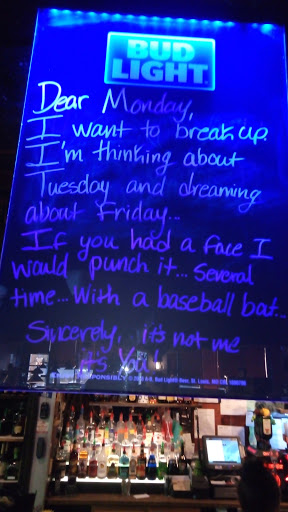 BUD
LIGHT
Dear Monday,
I want to break up
I'm thinking about
Tuesday and dreaming
about Friday...
If you had a face I
would punch it... Several
time... With a baseball bat...
Sincerely, it's not me
it's You!